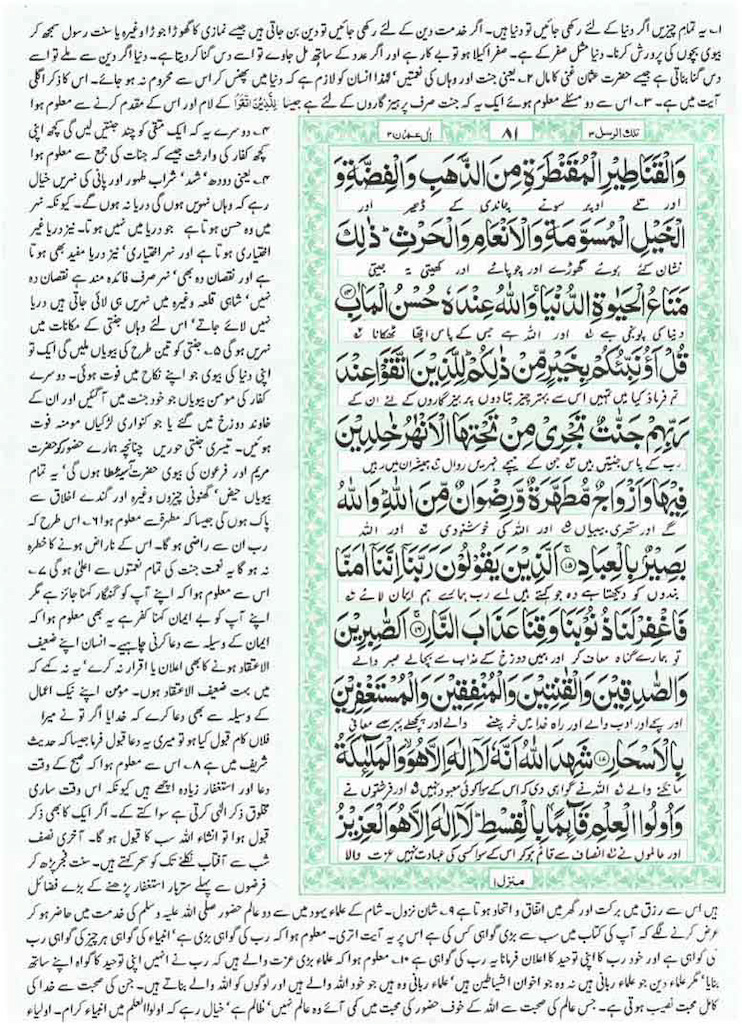 ۱؎ یہ تمام چیزیں اگر دنیا کے لئے رکھی جائیں تو دنیا ہیں۔ اگر خدمت دین کے لئے رکھی جائیں تو دین بن جاتی ہیں جیسے نمازی کا گھوڑا جوڑا وغیرہ یا سنت رسول سمجھ کر
بیوی بچوں کی پرورش کرنا۔ دنیا مثل صفر کے ہے۔ صفر اکیلا ہو تو بے کار ہے اور اگر عدد کے ساتھ مل جاوے تو اسے دس گنا کر دیتا ہے۔ دنیا اگر دین سے ملے تو اسے
دس گنا بناتی ہے جیسے حضرت عثمان غنی کا مال ۲؎ یعنی جنت اور وہاں کی نعمتیں' لہذا انسان کو لازم ہے کہ دنیا میں پھنس کر اس سے محروم نہ ہو جائے۔ اس کا ذکر اگلی
آیت میں ہے۔ ۳؎ اس سے دو مسئلے معلوم ہوئے ایک یہ کہ جنت صرف پرہیزگاروں کے لئے ہے جیسا لِلَّذِیْنَ اتَّقَوْا کے لام اور اس کے مقدم کرنے سے معلوم ہوا
تلك الرسل ۳
۸۱
اٰل عمران ۳
وَالْقَنَاطِیْرِ الْمُقَنْطَرَةِ مِنَ الذَّهَبِ وَالْفِضَّةِ وَ
اور تلے اوپر سونے چاندی کے ڈھیر اور
الْخَیْلِ الْمُسَوَّمَةِ وَالْاَنْعَامِ وَالْحَرْثِ ؕ ذٰلِكَ
نشان کئے ہوئے گھوڑے اور چوپائے اور کھیتی یہ
مَتَاعُ الْحَیٰوةِ الدُّنْیَا ۚ وَاللّٰهُ عِنْدَهٗ حُسْنُ الْمَاٰبِ ۝۱۴
دنیا کی پونجی ہے اور اللہ ہے جس کے پاس اچھا ٹھکانا
قُلْ اَؤُنَبِّئُكُمْ بِخَیْرٍ مِّنْ ذٰلِكُمْ ؕ لِلَّذِیْنَ اتَّقَوْا عِنْدَ
تم فرماؤ کیا میں تمہیں اس سے بہتر چیز بتا دوں پرہیزگاروں کے لئے ان کے
رَبِّهِمْ جَنّٰتٌ تَجْرِیْ مِنْ تَحْتِهَا الْاَنْهٰرُ خٰلِدِیْنَ
رب کے پاس جنتیں ہیں جن کے نیچے نہریں رواں ہمیشہ ان میں رہیں
فِیْهَا وَاَزْوَاجٌ مُّطَهَّرَةٌ وَّرِضْوَانٌ مِّنَ اللّٰهِ ؕ وَاللّٰهُ
گے اور ستھری بیبیاں اور اللہ کی خوشنودی اور اللہ
بَصِیْرٌۢ بِالْعِبَادِ ۝۱۵ اَلَّذِیْنَ یَقُوْلُوْنَ رَبَّنَاۤ اِنَّنَاۤ اٰمَنَّا
بندوں کو دیکھتا ہے وہ جو کہتے ہیں اے رب ہمارے ہم ایمان لائے
فَاغْفِرْ لَنَا ذُنُوْبَنَا وَقِنَا عَذَابَ النَّارِ ۝۱۶ اَلصّٰبِرِیْنَ
تو ہمارے گناہ معاف کر اور ہمیں دوزخ کے عذاب سے بچا لے صبر والے
وَالصّٰدِقِیْنَ وَالْقٰنِتِیْنَ وَالْمُنْفِقِیْنَ وَالْمُسْتَغْفِرِیْنَ
اور سچے اور ادب والے اور راہ خدا میں خرچنے والے اور پچھلے پہر سے معافی
بِالْاَسْحَارِ ۝۱۷ شَهِدَ اللّٰهُ اَنَّهٗ لَاۤ اِلٰهَ اِلَّا هُوَ ۙ وَالْمَلٰٓئِكَةُ
مانگنے والے اللہ نے گواہی دی کہ اس کے سوا کوئی معبود نہیں اور فرشتوں نے
وَاُولُوا الْعِلْمِ قَآئِمًۢا بِالْقِسْطِ ؕ لَاۤ اِلٰهَ اِلَّا هُوَ الْعَزِیْزُ
اور عالموں نے انصاف سے قائم ہو کر اس کے سوا کسی کی عبادت نہیں عزت والا
منزل ۱
۴؎ دوسرے یہ کہ ایک متقی کو چند جنتیں ملیں گی کچھ اپنی
کچھ کفار کی وارثت جیسے کہ جنات کی جمع سے معلوم ہوا
۴؎ یعنی دودھ' شہد' شراب طہور اور پانی کی نہریں خیال
رہے کہ وہاں نہریں ہوں گی دریا نہ ہوں گے۔ کیونکہ نہر
میں وہ حسن ہوتا ہے جو دریا میں نہیں ہوتا۔ نیز دریا غیر
اختیاری ہوتا ہے اور نہر اختیاری' نیز دریا مفید بھی ہوتا
ہے اور نقصان دہ بھی' نہر صرف فائدہ مند ہے نقصان دہ
نہیں' شاہی قلعہ وغیرہ میں نہریں ہی لائی جاتی ہیں دریا
نہیں لائے جاتے' اس لئے وہاں جنتی کے مکانات میں
نہریں ہوں گی ۵؎ جنتی کو تین طرح کی بیویاں ملیں گی ایک تو
اپنی دنیا کی بیوی جو اپنے نکاح میں فوت ہوئی۔ دوسرے
کفار کی مومن بیویاں جو خود جنت میں آگئیں اور ان کے
خاوند دوزخ میں گئے یا جو کنواری لڑکیاں مومنہ فوت
ہوئیں۔ تیسری جنتی حوریں چنانچہ ہمارے حضور کو حضرت
مریم اور فرعون کی بیوی حضرت آسیہ عطا ہوں گی' یہ تمام
بیویاں حیض' گھنونی چیزوں وغیرہ اور گندے اخلاق سے
پاک ہوں گی جیسا کہ مطہرۃ سے معلوم ہوا ۶؎ اس طرح کہ
رب ان سے راضی ہو گا۔ اس کے ناراض ہونے کا خطرہ
نہ ہو گا یہ نعمت جنت کی تمام نعمتوں سے اعلیٰ ہو گی ۷؎
اس سے معلوم ہوا کہ اپنے آپ کو گنہگار کہنا جائز ہے مگر
اپنے آپ کو بے ایمان کہنا کفر ہے یہ بھی معلوم ہوا کہ
ایمان کے وسیلہ سے دعا کرنی چاہیے۔ انسان اپنے ضعیف
الاعتقاد ہونے کا بھی اعلان یا اقرار نہ کرے' یہ نہ کہے کہ
میں بہت ضعیف الاعتقاد ہوں۔ مؤمن اپنے نیک اعمال
کے وسیلہ سے بھی دعا کرے کہ خدایا اگر تو نے میرا
فلاں کام قبول کیا ہو تو میری یہ دعا قبول فرما جیسا کہ حدیث
شریف میں ہے ۸؎ اس سے معلوم ہوا کہ صبح کے وقت
دعا اور استغفار زیادہ اچھے ہیں کیونکہ اس وقت ساری
مخلوق ذکر الٰہی کرتی ہے سوا کتے کے۔ اگر ایک کا بھی ذکر
قبول ہوا تو انشاء اللہ سب کا قبول ہو گا۔ آخری نصف
شب سے آفتاب نکلنے تک کو سحر کہتے ہیں۔ سنت فجر پڑھ کر
فرضوں سے پہلے ستر بار استغفار پڑھنے کے بڑے فضائل
ہیں اس سے رزق میں برکت اور گھر میں اتفاق و اتحاد ہوتا ہے ۹؎ شان نزول۔ شام کے علماء یہود میں سے دو عالم حضور صلی اللہ علیہ وسلم کی خدمت میں حاضر ہو کر
عرض کرنے لگے کہ آپ کی کتاب میں سب سے بڑی گواہی کس کی ہے اس پر یہ آیت اتری۔ معلوم ہوا کہ رب کی گواہی بڑی ہے' انبیاء کی گواہی ہر چیز کی گواہی رب
کی گواہی ہے اور خود رب کا اپنی توحید کا اعلان فرمانا یہ رب کی گواہی ہے ۱۰؎ معلوم ہوا کہ علماء بڑی عزت والے ہیں کہ رب نے انہیں اپنی توحید کا گواہ اپنے ساتھ
بنایا' مگر علماء دین جو علماء ربانی ہیں نہ وہ جو اخوان الشیاطین ہیں' علماء ربانی وہ ہیں جو خود اللہ والے ہیں اور لوگوں کو اللہ والے بناتے ہیں۔ جن کی صحبت سے خدا کی
کامل محبت نصیب ہوتی ہے۔ جس عالم کی صحبت سے اللہ کے خوف حضور کی محبت میں کمی آئے وہ عالم نہیں' ظالم ہے' خیال رہے کہ اولوا العلم میں انبیاء کرام۔ اولیاء